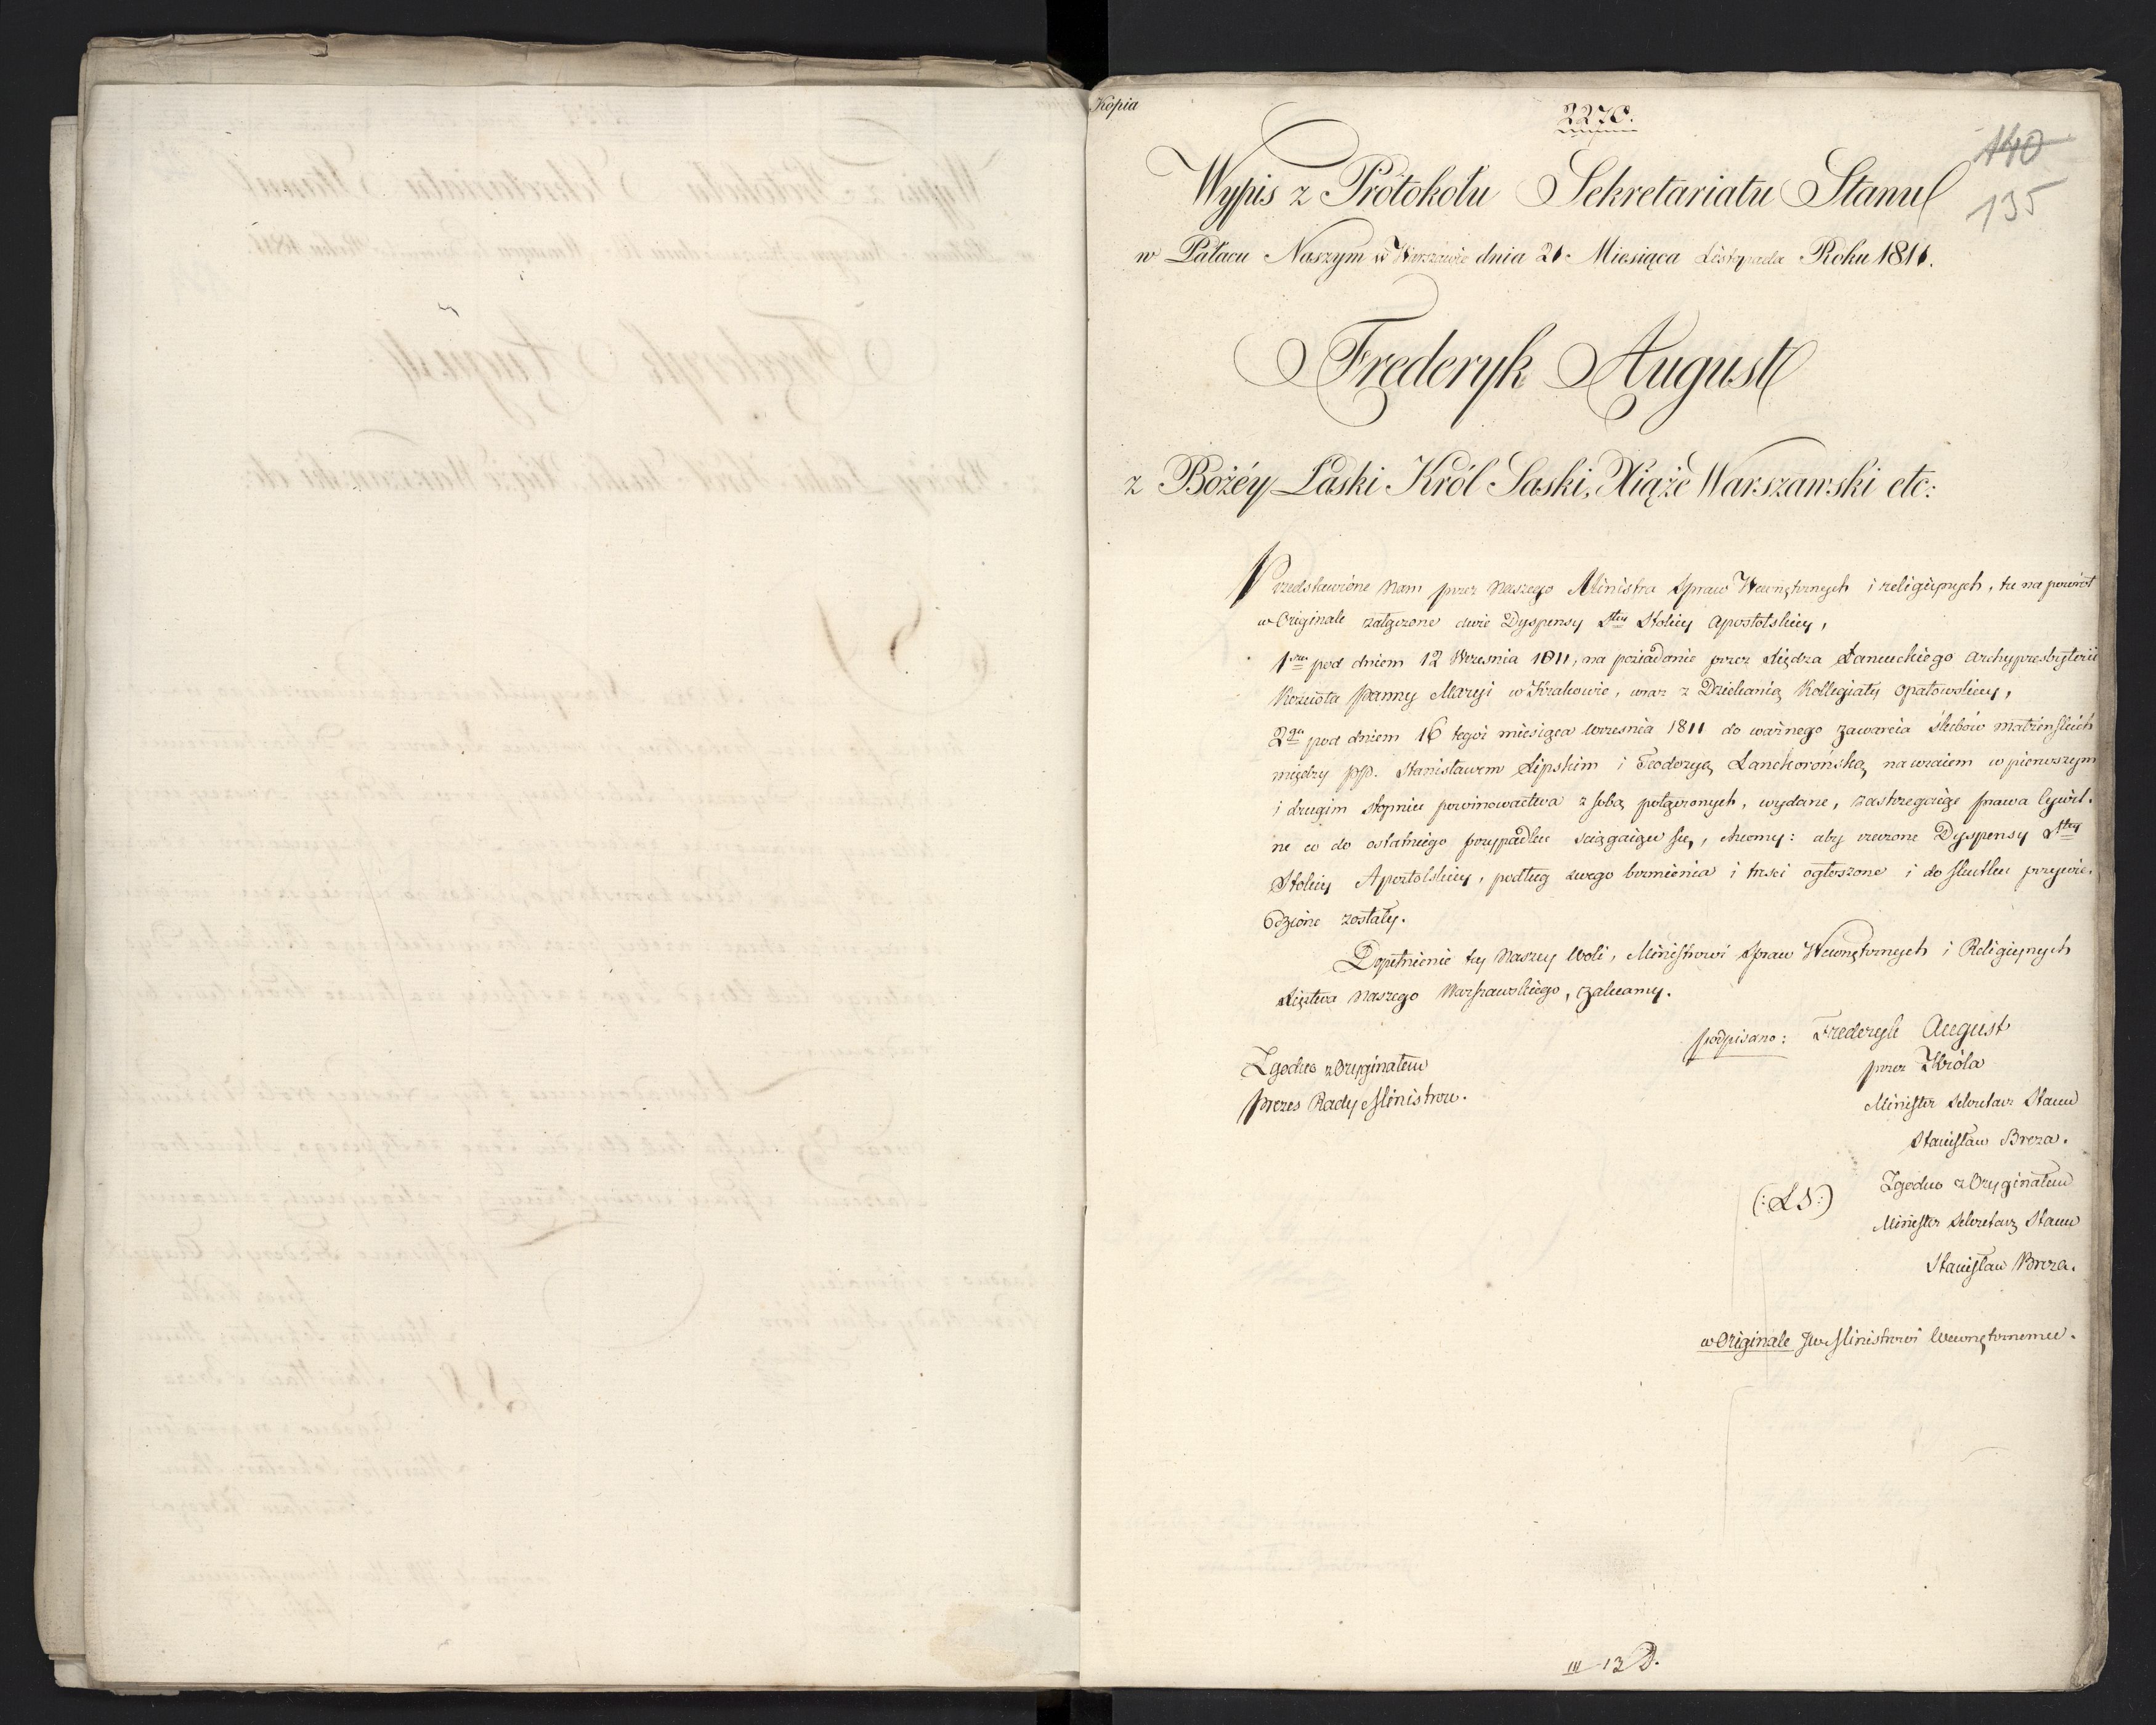 Kopia
2270.
140
135
Wypis z Protokołu Sekretariatu Stanu
w Pałacu Naszym w Warszawie dnia 21. Miesiąca Listopada Roku 1811.
Frederyk August
z Bożéy Łaski Król Saski, Xiąże Warszawski etc:
Przedstawione Nam przez Naszego Ministra Spraw Wewnętrznych i religijnych, tu na powrót
w Originale załączone dwie Dyspensy Stey Stolicy Apostolskiey,
1sza pod dniem 12 Września 1811, na posiadanie przez Xiędza Łancuckiego Archypresbyterii
Kościoła Panny Maryi w Krakowie, wraz z Dziekanią Kollegiaty Opatowskiey,
2ga pod dniem 16 tegoż miesiąca Września 1811 do ważnego zawarcia ślubów małżeńskich
między pp. Stanisławem Lipskim i Teodorą Lanckorońską nawzaiem w pierwszym
i drugim stopniu powinowactwa z sobą połączonych, wydane, zastrzegaiąc prawa Cywil-
ne co do ostatniego przypadku ściągaiące się, chcemy: aby rzeczone Dyspensy Stey
Stolicy Apostolskiey, podług swego brzmienia i treści ogłoszone i do skutku przywie-
dzione zostały.
Dopełnienie tey Naszey Woli, Ministrowi Spraw Wewnętrznych i Religiynych
Xięztwa Naszego Warszawskiego, zalecamy.
podpisano: Frederyk August
przez Króla
Minister Sekretarz Stanu
Stanisław Breza.
Zgodno z Oryginałem
Prezes Rady Ministrów.
(:LS:)
Zgodno z Oryginałem
Minister Sekretarz Stanu
Stanisław Breza.
w Originale JW Ministrowi Wewnętrznemu.
III 13 D.